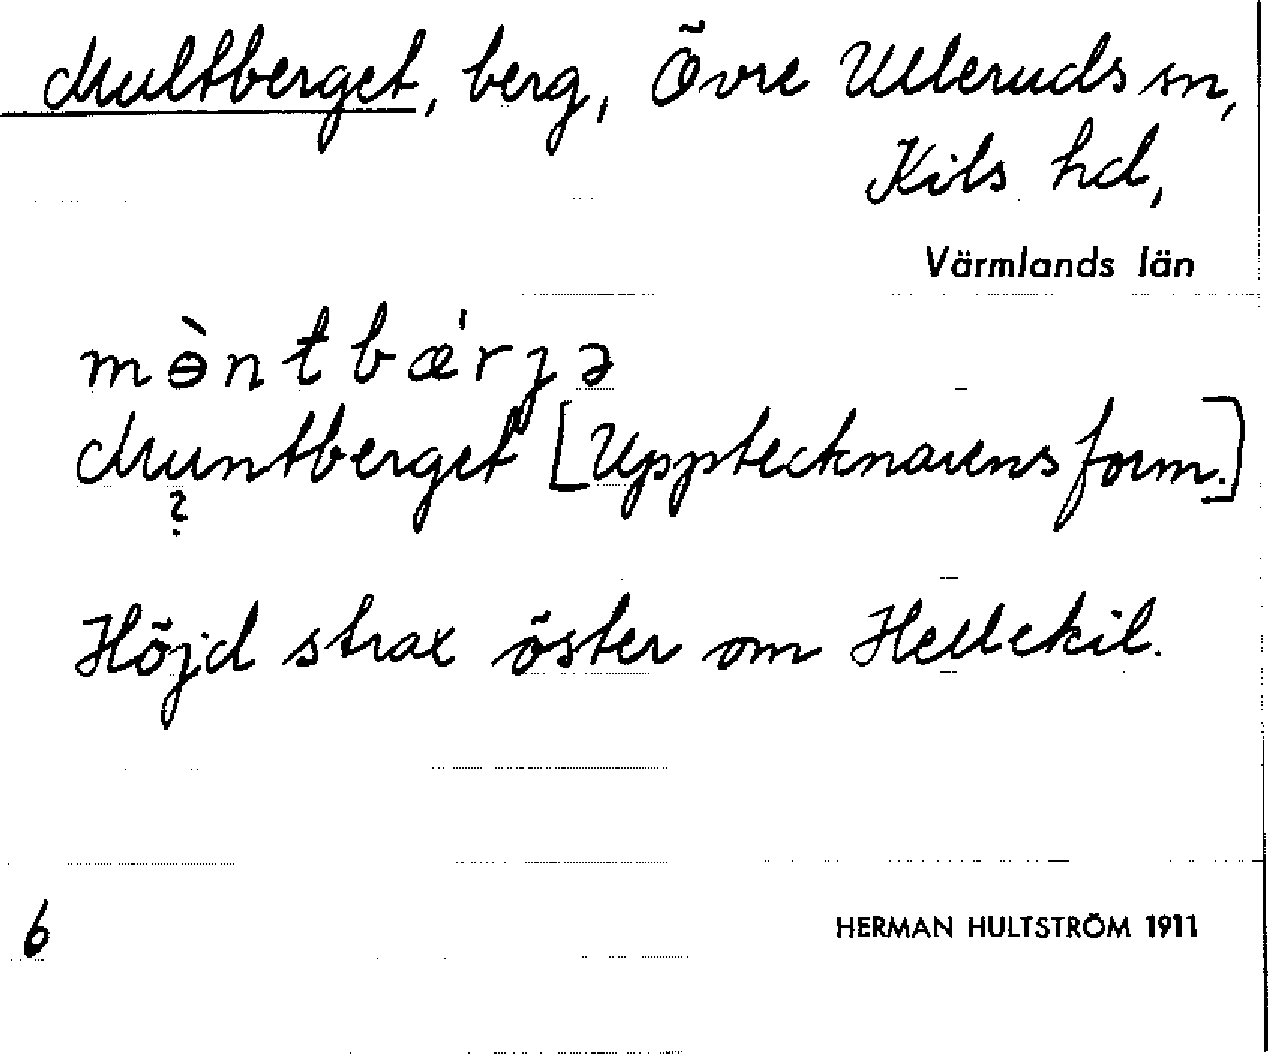 Multberget, berg, Övre Ulleruds sn,
Kils hd,
Värmlands län
mɵ̀ntbǽrȷə
Muntberget [Upptecknarens form.]
?
Höjd strax öster om Hellekil.
6
HERMAN HULTSTRÖM 1911